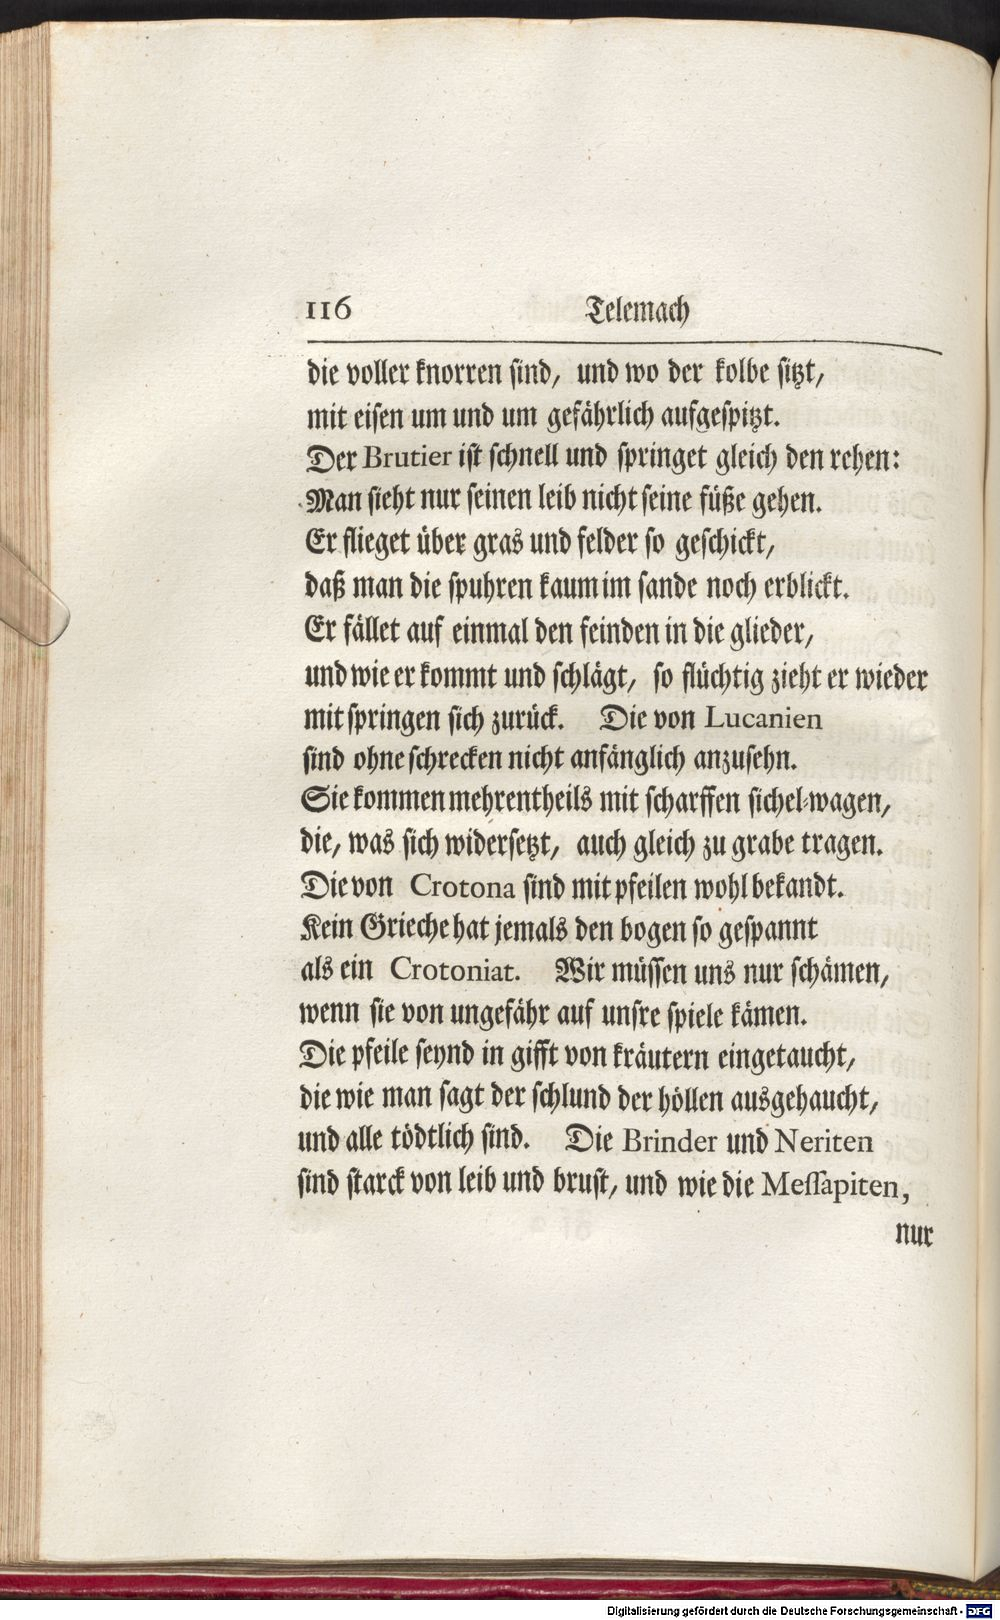 116 Telemach
die voller knorren sind, und wo der kolbe sitzt,
mit eisen um und um gefährlich aufgespitzt.
Der Brutier ist schnell und springet gleich den rehen:
Man sieht nur seinen leib nicht seine füße gehen.
Er flieget über gras und felder so geschickt,
daß man die spuhren kaum im sande noch erblickt.
Er fället auf einmal den feinden in die glieder,
und wie er kommt und schlägt, so flüchtig zieht er wieder
mit springen sich zurück. Die von Lucanien
sind ohne schrecken nicht anfänglich anzusehn.
Sie kommen mehrentheils mit scharffen sichel-wagen,
die, was sich widersetzt, auch gleich zu grabe tragen.
Die von Crotona sind mit pfeilen wohl bekandt.
Kein Grieche hat jemals den bogen so gespannt
als ein Crotoniat. Wir müssen uns nur schämen,
wenn sie von ungefähr auf unsre spiele kämen.
Die pfeile seynd in gifft von kräutern eingetaucht,
die wie man sagt der schlund der höllen ausgehaucht,
und alle tödtlich sind. Die Brinder und Neriten
sind starck von leib und brust, und wie die Messapiten,
nur
Digitalisierung gefördert durch die Deutsche Forschungsgemeinschaft - DFG